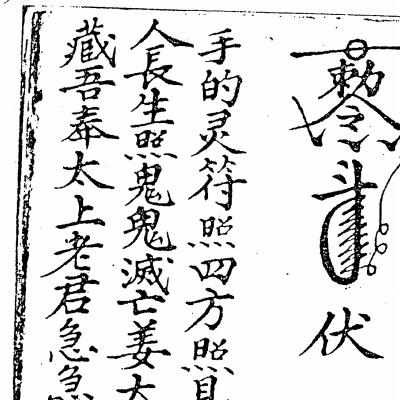 敕令
斗
伏
手的灵符照四方照見
人長生照鬼鬼滅亡姜太
藏吾奉太上老君急急